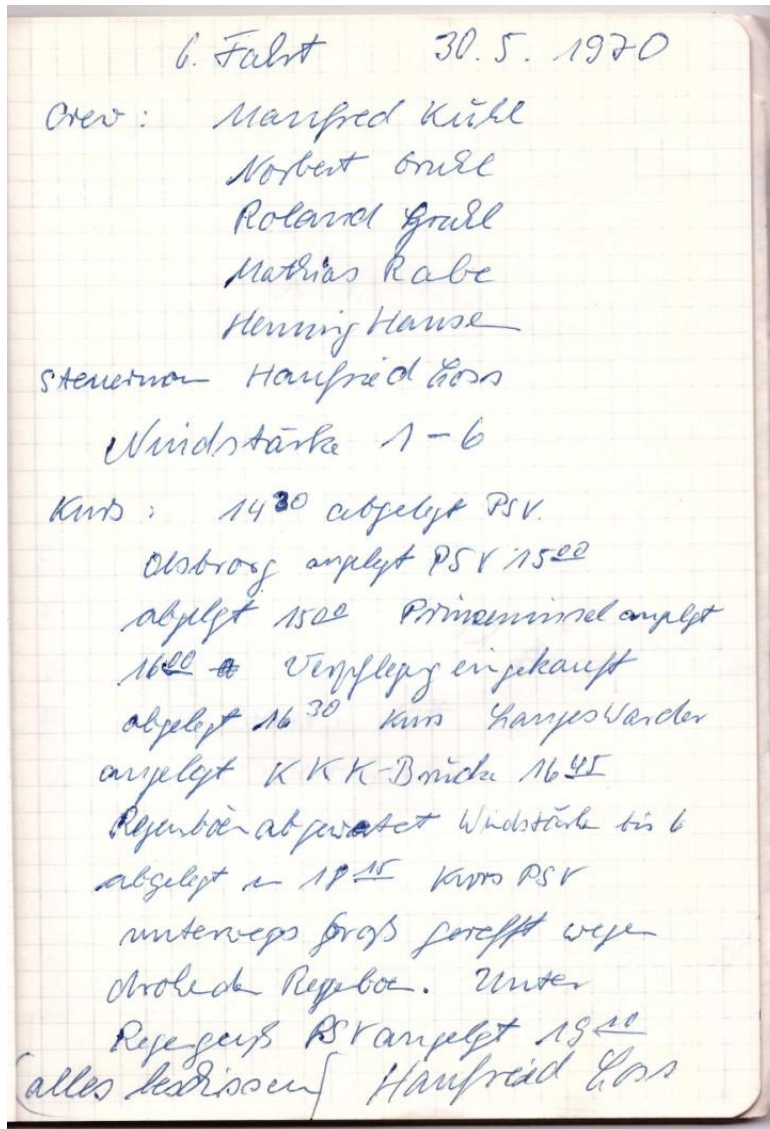 6. Fahrt 30. 5. 1970
Crew: Manfred Kühl
Norbert Gruhl
Roland Gruhl
Mathias Rabe
Henning Hansen
Steuermann Hanfried Loss
Windstärke 1-6
Kurs: 14 30 abgelegt PSV.
angelegt PSV 15 00
abgelegt 15 00 Prinzeninsel angelegt
16 00 Verpflegung eingekauft
abgelegt 16 30 Kurs Langes Warder
angelegt KKK-Brücke 16 45
Regenböen abgewartet Windstärke bis 6
abgelegt 18 15 Kurs PSV
unterwegs groß gerefft wegen
drohenden Regenböen. Unter
Regenguß PSV angelegt 19 10
(alles beschissen) Hanfried Loss